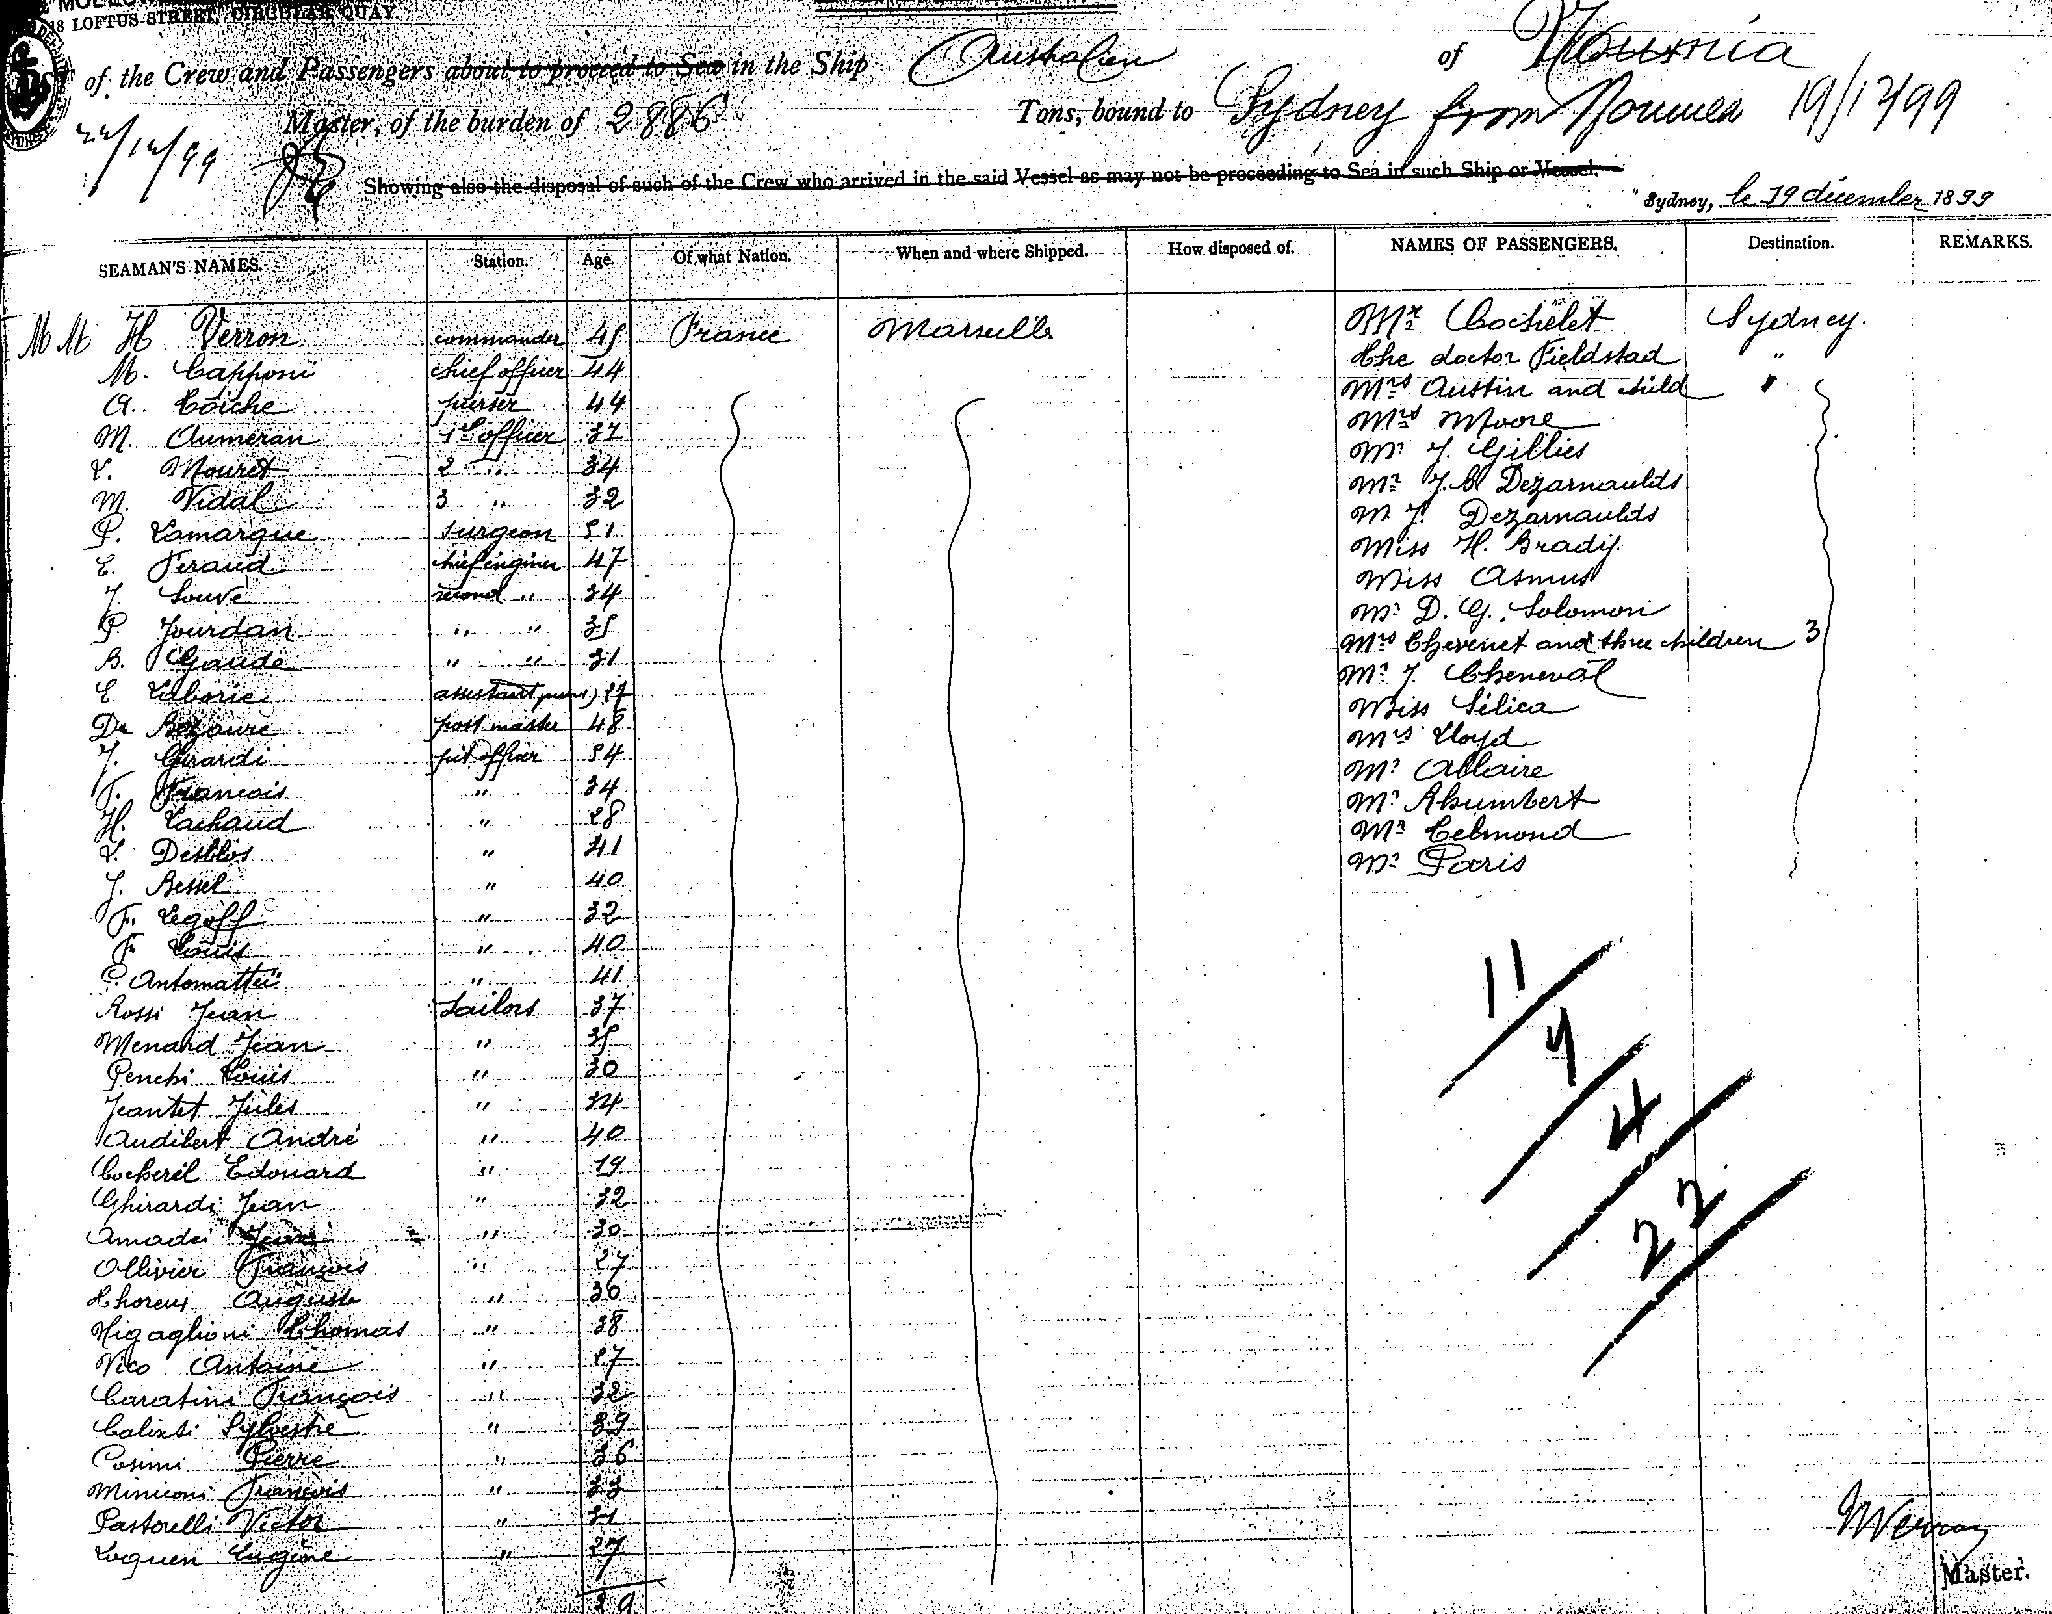 LOFTUS STREET, CIRCULAR QUAY
of the Crew and Passengers about to proceed to Sea in the Ship Australien of Noumea
Master, of the burden of 2886 Tons, bound to Sydney from Noumea 19/12/99
22/12/99
Showing also the disposal of such of the Crew who arrived in the said Vessel as may not be proceeding to Sea in such Ship or Vessel.
Sydney, le 19 décember 1899
SEAMAN'S NAMES. Station. Age Of what Nation. When and where Shipped. How disposed of. NAMES OF PASSENGERS. Destination. REMARKS.
MM H Verron commander 45 France Marseille Mr Cochelet Sydney.
M. Capponi chief officer 44 The doctor Fieldstad "
A. Coiche purser 44 Mrs Austin and child "
M. Aumeran 1st officer 37 Mrs Moore
L. Mouret 2 " 34 Mr J. Gillies
M. Vidal 3 " 32 Mr J. C Dezarnaulds
P. Lamarque surgeon 51 M J. Dezarnaulds
E. Feraud chief enginer 47 Miss H. Brady.
J. Souve second " 34 Miss Asmus
P. Jourdan " " 35 Mr D. G. Solomon
B. Gaude " " 31 Mrs Chevenet and three children 3
E Laborie assistant purs) 27 Mr J. Cheneval
De Bezaure post master 48 Miss Silica
J. Girardi pet officer 54 Mrs Lloyd
F. Francois " 34 Mr Allaire
H. Lachaud " 28 Mr Ahumbert
L. Desblos " 41 Mr Celmond
J. Bessel " 40 Mr Paris
F. Legoff " 32
F Louis " 40
C. Antomattei " 41
Rossi Jean Sailors 37
Menard Jean " 35
Penchi Louis " 30
Jeantet Jules " 34
Audibert André " 40
Cockeril Edouard " 19
Ghirardi Jean " 32
Amadei Jean " 30
Ollivier François " 27
Thoreux Auguste " 30
Nigaglioni Thomas " 38
Vico Antoine " 27
Caratini François " 32
Calinti Sylvestre " 39
Cosimi Pierre " 36
Miniconi François " 33
Pastorelli Victor " 31
Loquen Eugène " 27
39
11
7
4
22
HVerron
Master.